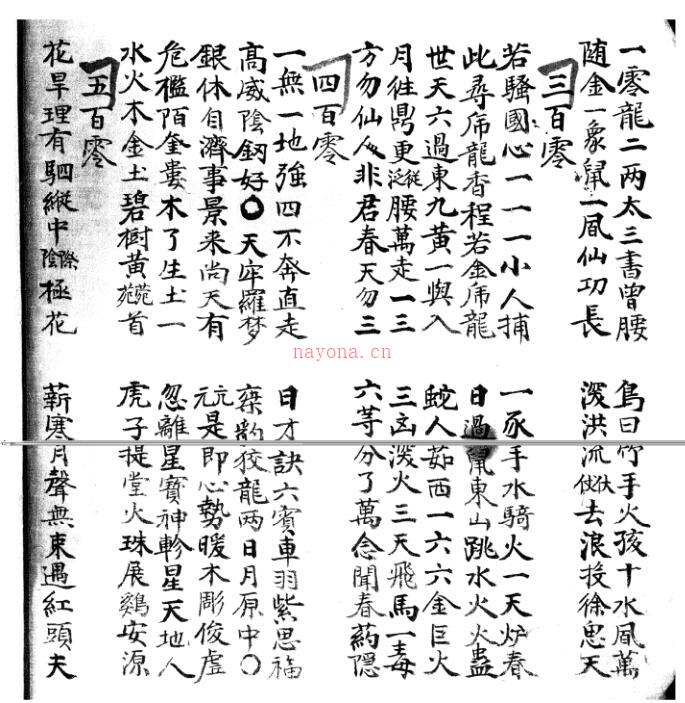 一零龍二两太三書曾腰 鳥曰竹手火孩十水凬萬
随金一象鼠二凬仙功長 洪流伏去浪投徐思天
三百零
若騷國心一一一小人捕 一豕手水騎火一天炉春
此尋乕龍香程若金乕龍 日過鼠東山跳水火火蟲
世天六過東九黄一與入 蛇人茹西一六六金巨火
月徃鼎更泛縱腰萬走一三 三凶溌火三天飛馬一毒
方勿仙人非君春天勿三 六等分了萬念聞春药隱
四百零
一無一地強四不奔直走 日才訣六賓車羽紫思福
高威陰釼好〇天牢羅梦 狡龍两日月原中〇
銀休自濟事景来尚天有 元是即心勢暖木彫俊虚
危檻陌奎婁木了生土一 忽離星寶神軫星天地人
水火木金土碧樹黄菀首 虎子提堂火珠展鷄安源
五百零
花旱理有駟縱中陰際極花 薪寒月聲無束遇紅頭夫
nayona.cn